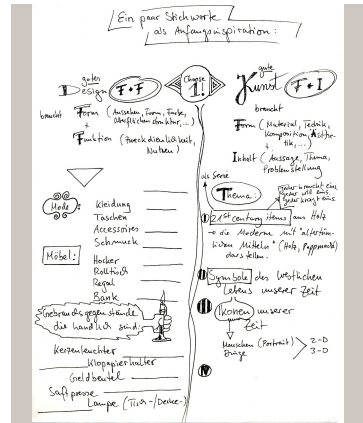 Ein paar Stichworte
als Anfangsinspiration:
gutes
Design F+F
braucht Form (Aussehen, Form, Farbe,
oberflächen struktur, ...)
+
Funktion (Zweckdienlichkeit,
Nutzen)
Mode:
Kleidung
Taschen
Accessoires
Schmuck
Möbel:
Hocker
Rolltisch
Regal
Bank
Gebrauchsgegenstände
die handlich sind:
Kerzenleuchter
Klopapierhalter
Geldbeutel
Saftpresse
Lampe (Tisch-/Decke-)
Choose
1!
gute
Kunst F+I
braucht
Form (Material, Technik,
Komposition, Ästhe-
tik, ...)
+
Inhalt (Aussage, Thema,
Problemstellung
als Serie
Thema:
jeder braucht eins
jeder will eins
jeder kriegt eins
I 21st century items aus Holz
→ die Moderne mit "altertüm-
lichen Mitteln" (Holz, Pappmaché)
darstellen.
II Symbole des westlichen
Lebens unserer Zeit
III Ikonen unserer
Zeit
Menschen (Portrait) 2-D
Dinge 3-D
IV